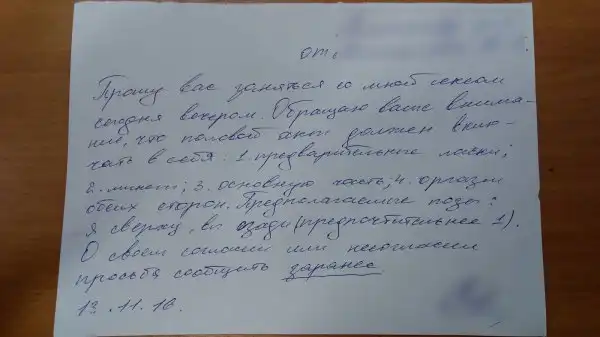 от:
Прошу вас заняться со мной сексом
сегодня вечером. Обращаю ваше внима-
ние, что половой акт должен вклю-
чать в себя: 1. предварительные ласки;
2. минет; 3. основную часть; 4. оргазм
обеих сторон. Предполагаемые позы:
я сверху, вы сзади (предпочтительнее 1).
О своем согласии или несогласии
просьба сообщить заранее
13.11.16.